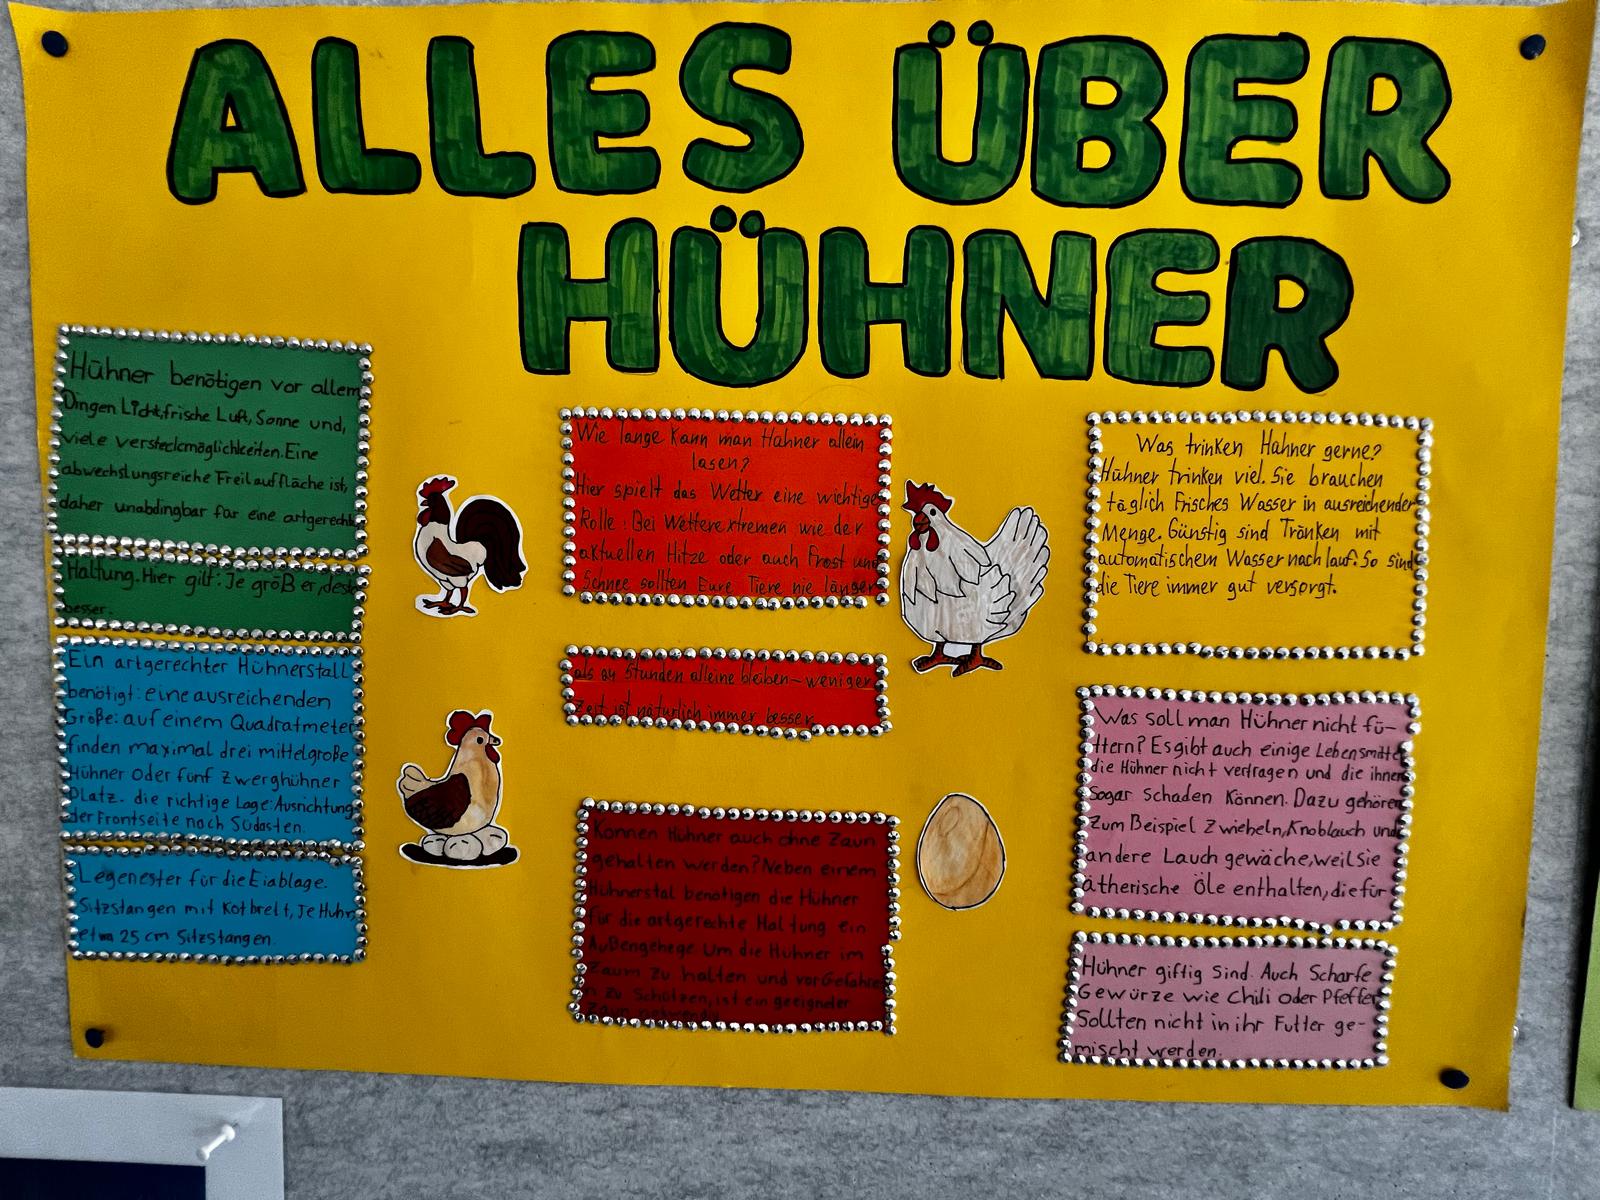 ALLES ÜBER
HÜHNER
Hühner benötigen vor allem
Dingen Licht, frische Luft, Sonne und,
viele versteckmöglichkeiten. Eine
abwechslungsreiche Freilauffläche ist,
daher unabdingbar für eine artgerecht
Haltung. Hier gilt: Je größer, desto
besser.
Ein artgerechter Hühnerstall
benötigt: eine ausreichenden
Größe: auf einem Quadratmeter
finden maximal drei mittelgroße
Hühner oder fünf Zwerghühner
Platz. die richtige Lage: Ausrichtung
der Frontseite nach Südosten.
Legenester für die Eiablage.
Sitzstangen mit Kotbrett, Je Huhn
etwa 25 cm Sitzstangen.
Wie lange kann man Hühner allein
lasen?
Hier spielt das Wetter eine wichtige
Rolle: Bei Wetterextremen wie der
aktuellen Hitze oder auch Frost und
Schnee sollten Eure Tiere nie länger
als 24 Stunden alleine bleiben – weniger
Zeit ist natürlich immer besser.
Können Hühner auch ohne Zaun
gehalten werden? Neben einem
Hühnerstal benötigen die Hühner
für die artgerechte Haltung ein
Außengehege Um die Hühner im
Zaum zu halten und vor Gefahre
n zu Schützen, ist ein geeigneter
Zaun notwendig.
Was trinken Hühner gerne?
Hühner trinken viel. Sie brauchen
täglich Frisches Wasser in ausreichender
Menge. Günstig sind Tränken mit
automatischem Wasser nach lauf. So sind
die Tiere immer gut versorgt.
Was soll man Hühner nicht fü-
ttern? Es gibt auch einige Lebensmittel
die Hühner nicht vertragen und die ihnen
Sogar schaden Können. Dazu gehören
Zum Beispiel Zwiebeln, Knoblauch und
andere Lauch gewäche, weil Sie
ätherische Öle enthalten, die für
Hühner giftig Sind. Auch Scharfe
Gewürze wie Chili oder Pfeffer
Sollten nicht in ihr Futter ge-
mischt werden.